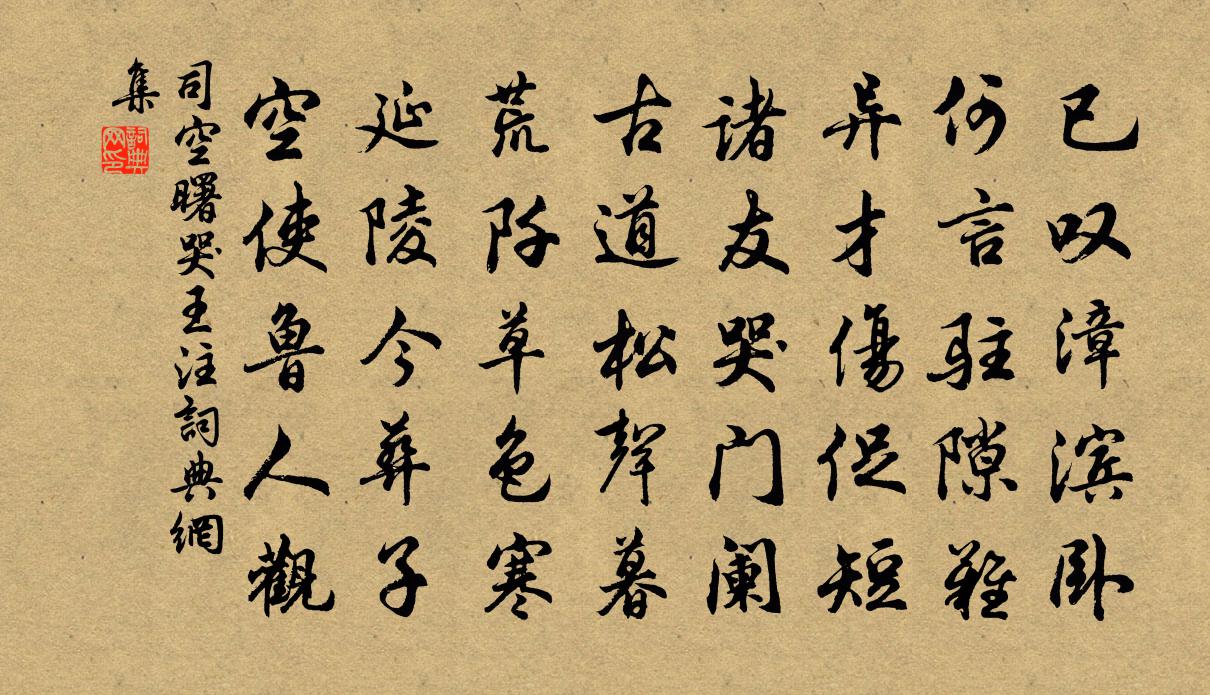 已叹漳滨卧
何言驻隙难
异才傷促短
诸友哭门阑
古道松聲暮
荒阡草色寒
延陵今葬子
空使鲁人觀
司空曙哭王注詞典網
集
詞典网印